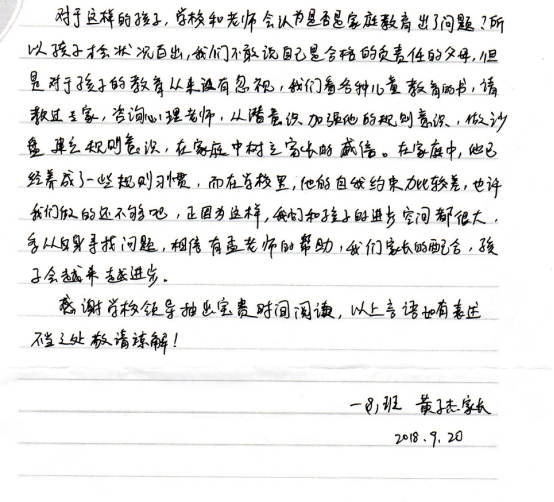 对于这样的孩子，学校和老师会认为是否是家庭教育出了问题？所
以孩子才会状况百出，我们不敢说自己是合格的负责任的父母，但
是对于孩子的教育从来没有忽视，我们看各种儿童教育的书，请
教过专家，咨询心理老师，从潜意识加强他的规则意识，做沙
盘建立规则意识，在家庭中树立家长的威信。在家庭中，他已
经养成了一些规则习惯，而在学校里，他的自我约束力比较差，也许
我们做的还不够吧，正因为这样，我们和孩子的进步空间都很大，
多从自身寻找问题，相信有孟老师的帮助，我们家长的配合，孩
子会越来越进步。
感谢学校领导抽出宝贵时间阅读，以上言语如有表述
不当之处敬请谅解！
班 黄子杰家长
2018.9.20